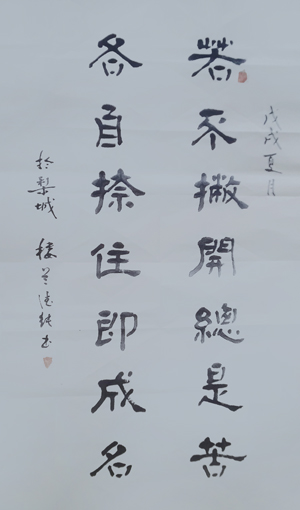 戊戌夏月
若不撇開總是苦
各自捺住即成名
於梨城 楼兰